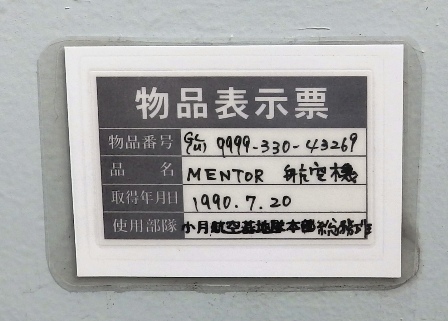 物品表示票
物品番号 9999-330-43269
品名 MENTOR 航空機
取得年月日 1990.7.20
使用部隊 小月航空基地隊本部総務